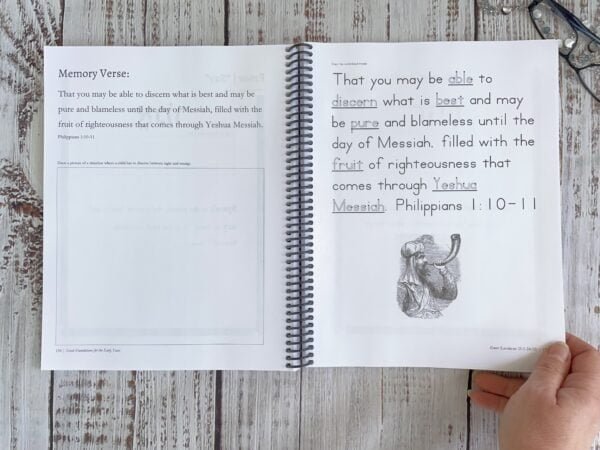 Memory Verse:
That you may be able to discern what is best and may be
pure and blameless until the day of Messiah, filled with the
fruit of righteousness that comes through Yeshua Messiah.
Philippians 1:10-11
Draw a picture of a situation where a child has to discern between right and wrong:
That you may be able to
discern what is best and may
be pure and blameless until the
day of Messiah, filled with the
fruit of righteousness that
comes through Yeshua
Messiah. Philippians 1:10-11